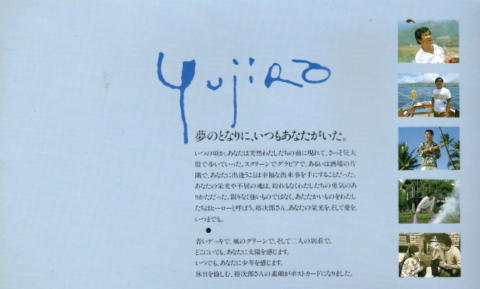 Yujiro
夢のとなりに、いつもあなたがいた。
いつの頃か、あなたは突然わたしたちの前に現れて、さっそうと大
股で歩いていった。スクリーンでグラビアで、あるいは酒場の片
隅で、あなたに出逢うことは幸福な出来事を手にすることだった。
あなたの栄光や不屈の魂は、紛れもなくわたしたちの勇気のあ
りかただった。限りなく強いものではなく、あたたかいものをわたし
たちはヒーローと呼ぼう。裕次郎さん、あなたの栄光を、そして愛を
いつまでも。
●
青いデッキで、風のグリーンで、そして二人の別荘で。
どこにいても、あなたに太陽を感じます。
いつでも、あなたに少年を感じます。
休日を愉しむ、裕次郎さんの素顔がポストカードになりました。